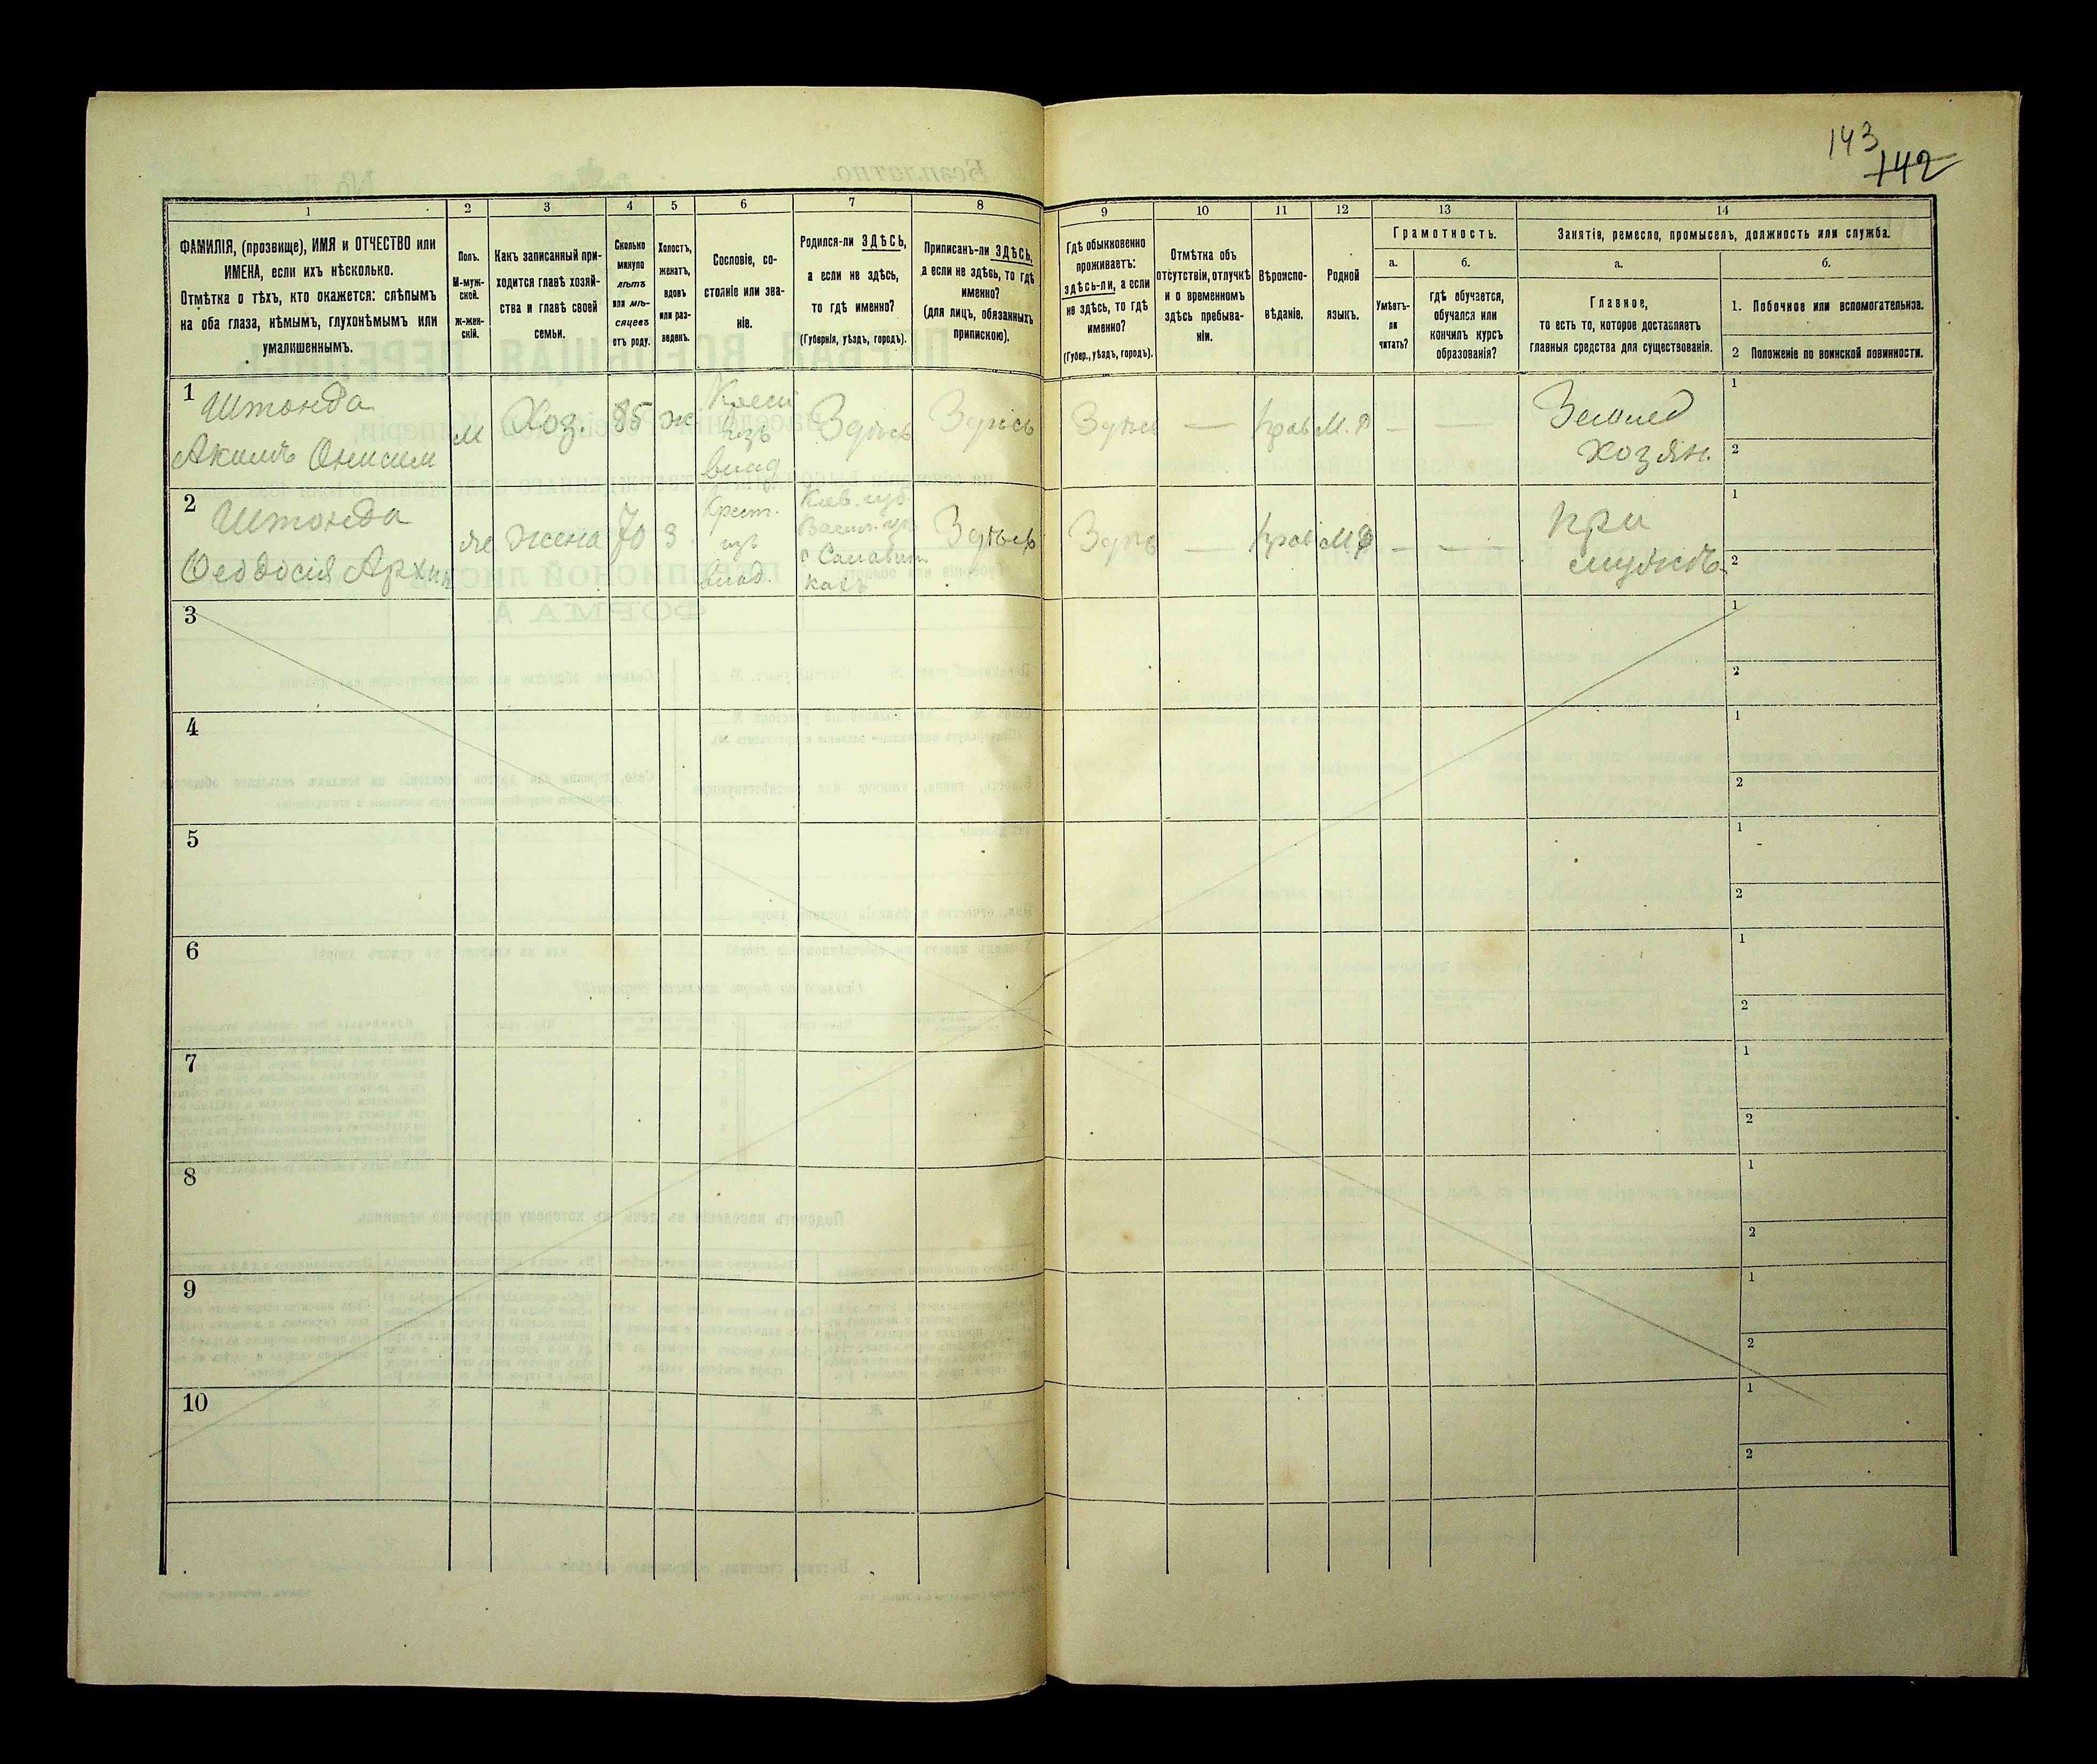 143
142
1
2
3
4
5
6
7
8
9
10
11
12
13
14
ФАМИЛІЯ, (прозвище), ИМЯ и ОТЧЕСТВО или
ИМЕНА, если ихъ нѣсколько.
Отмѣтка о тѣхъ, кто окажется: слѣпымъ
на оба глаза, нѣмымъ, глухонѣмымъ или
умалишеннымъ.
Полъ.
М-муж-
ской.
ж-жен-
скій.
Какъ записанный при-
ходится главѣ хозяй-
ства и главѣ своей
семьи.
Сколько
минуло
лѣтъ
или мѣ-
сяцевъ
отъ роду.
Холостъ,
женатъ,
вдовъ
или раз-
веденъ.
Сословіе, со-
стояніе или зва-
ніе.
Родился-ли ЗДѢСЬ,
а если не здѣсь,
то гдѣ именно?
(Губернія, уѣздъ, городъ).
Приписанъ-ли ЗДѢСЬ,
а если не здѣсь, то гдѣ
именно?
(для лицъ, обязанныхъ
припискою).
Гдѣ обыкновенно
проживаетъ:
здѣсь-ли, а если
не здѣсь, то гдѣ
именно?
(Губер., уѣздъ, городъ).
Отмѣтка объ
отсутствіи, отлучкѣ
и о временномъ
здѣсь пребыва-
ніи.
Вѣроиспо-
вѣданіе.
Родной
языкъ.
Грамотность.
а.
Умѣетъ-
ли
читать?
б.
гдѣ обучается,
обучался или
кончилъ курсъ
образованія?
Занятія, ремесло, промыселъ, должность или служба.
а.
Главное,
то есть то, которое доставляетъ
главныя средства для существованія.
б.
1. Побочное или вспомогательное.
2 Положеніе по воинской повинности.
1
Штонда
Акимъ Онисим
м
Хоз.
85
ж
Крест
изъ
влад
Здѣсь
Здѣсь
Здѣсь
—
прав
М. Р
—
—
Землед
хозян.
1
2
2
Штонда
Ѳеодосія Архип
же
жена
70
з.
Крест.
изъ
влад.
Кіев. губ.
Васил. у.
Здѣсь
Здѣсь
—
прав
М. Р
—
—
при
мужѣ
1
2
3
1
2
4
1
2
5
1
2
6
1
2
7
1
2
8
1
2
9
1
2
10
1
2